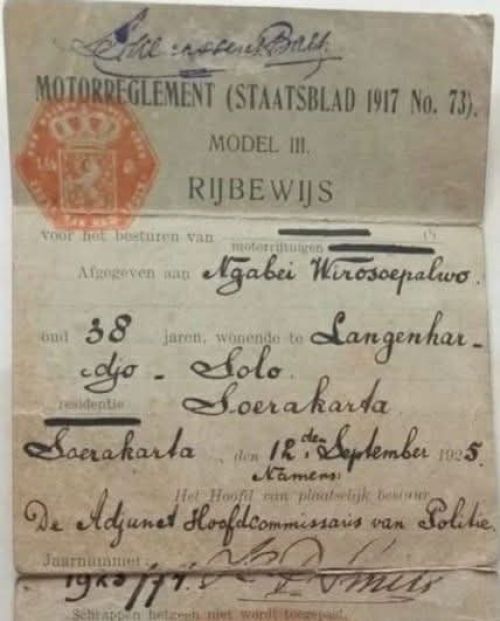 MOTORREGLEMENT (STAATSBLAD 1917 No. 73).
MODEL III.
RIJBEWIJS
voor het besturen van
motorrijtuigen
Afgegeven aan Ngabei Wirosoepalwo.
oud 38 jaren, wonende te Langenhar-
djo - Solo.
residentie Soerakarta
Soerakarta, den 12den September 1925.
Namens
Het Hoofd van plaatselijk bestuur
De Adjunct Hoofdcommissaris van Politie.
Jaarnummer:
Schrappen hetgeen niet wordt toegepast.